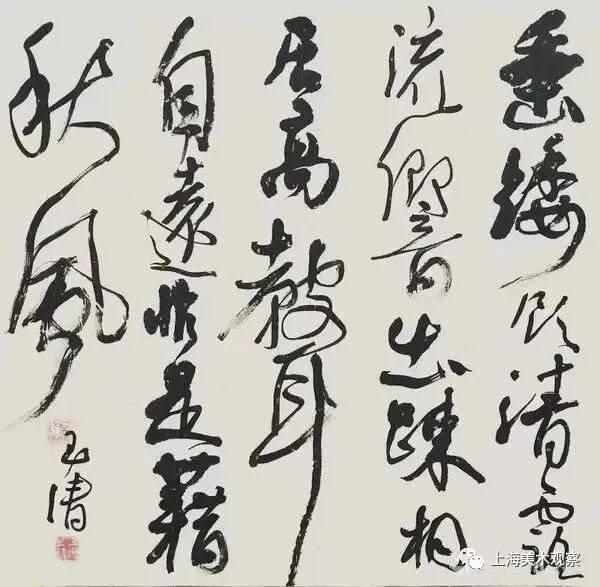 垂緌飲清露
流響出疎桐
居高聲
自遠非是藉
秋風
玉清
上海美术观察